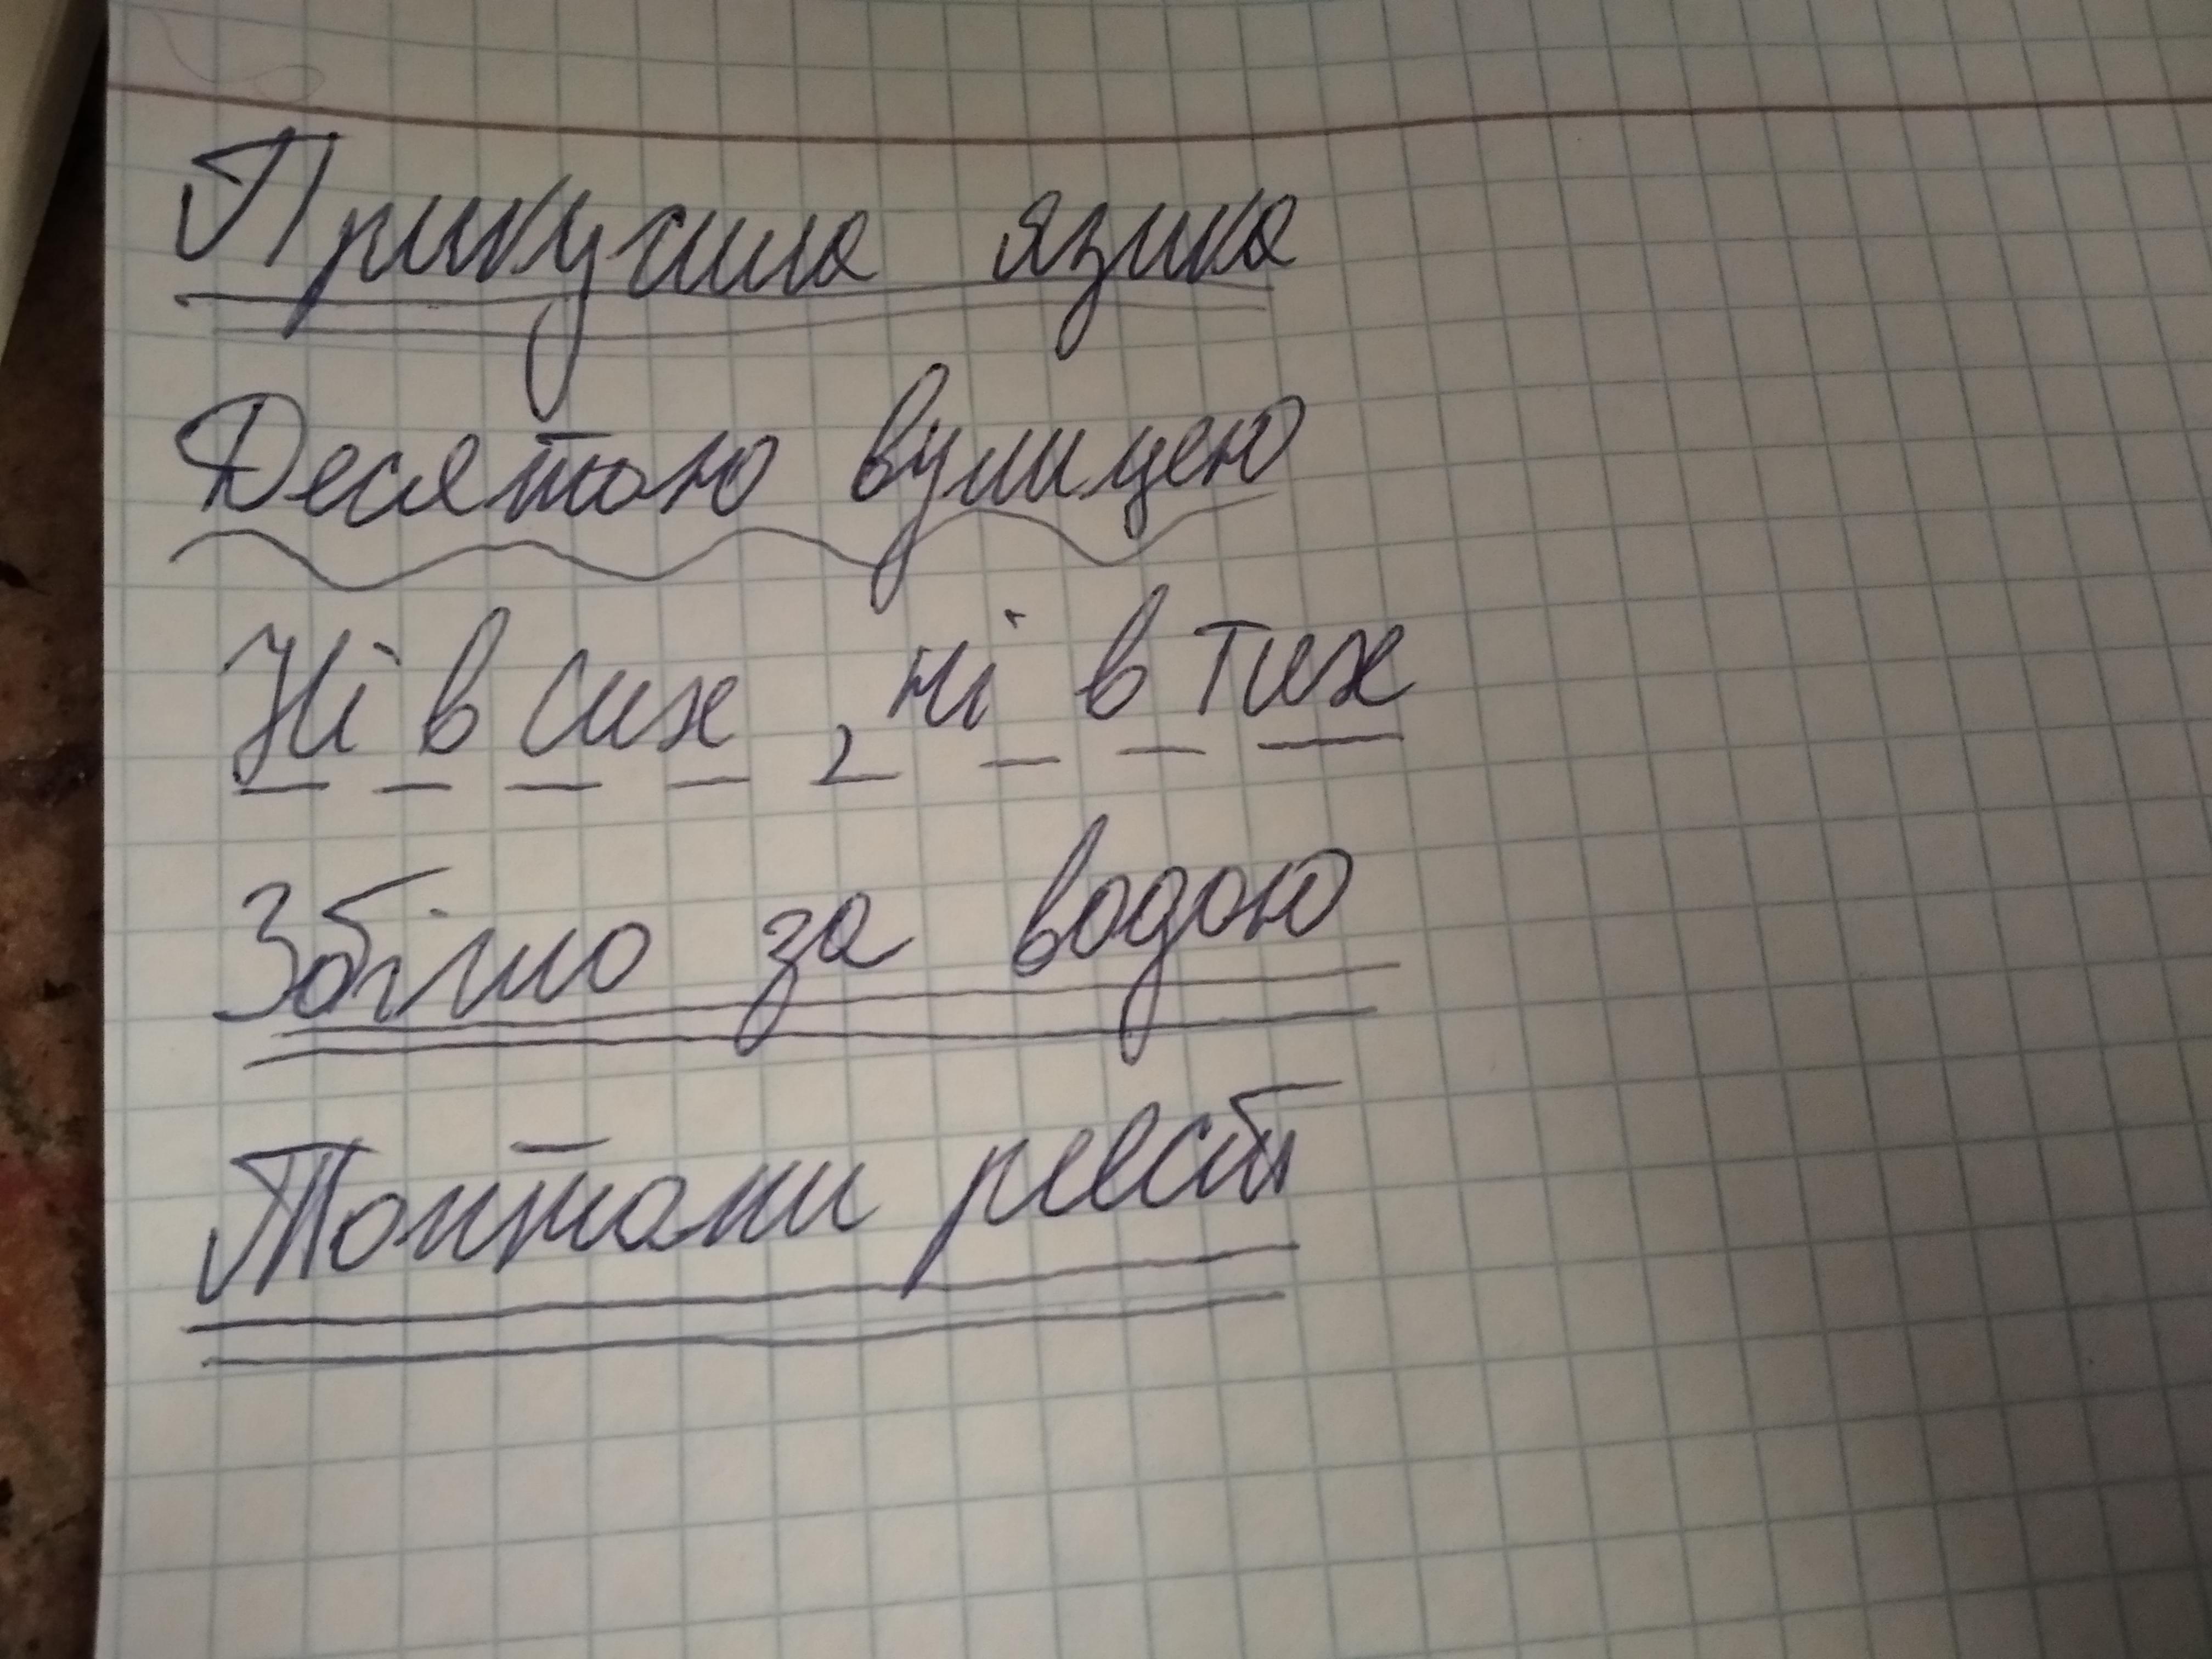 Прикусила язика
Десятою вулицею
Ні в сих, ні в тих
Збігло за водою
Топтали ряст